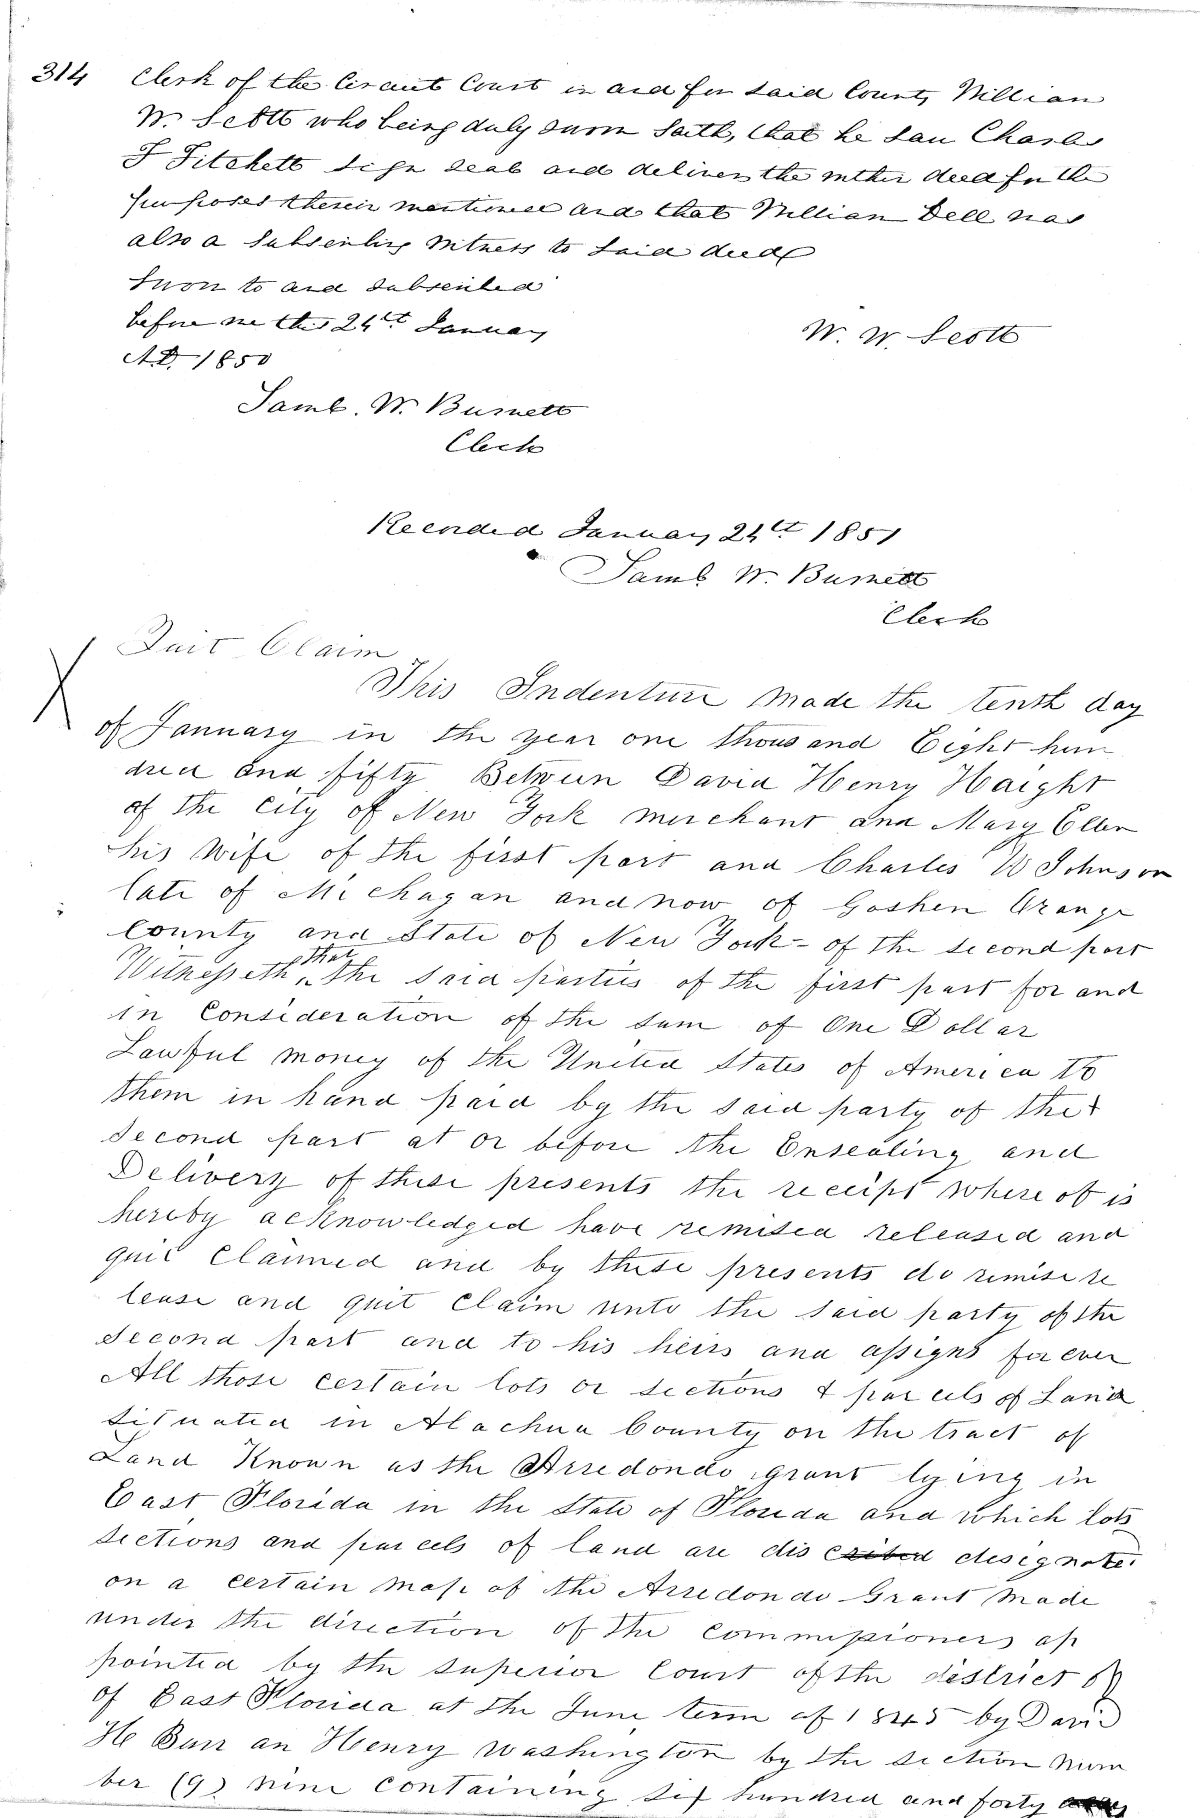 314
Clerk of the Circuit Court in and for said County William
W. Scott who being duly sworn saith, that he saw Charles
F Fitchett sign seal and deliver the within deed for the
purposes therein mentioned and that William Dell was
also a subscribing witness to said deed
Sworn to and subscribed
before me this 24th January
A.D. 1850
W. W. Scott
Saml. W. Burnett
Clerk
Recorded January 24th 1851
Saml W. Burnett
Clerk
Quit Claim
This Indenture made the tenth day
of January in the year one thousand Eight hun
dred and fifty Between David Henry Haight
of the City of New York merchant and Mary Ellen
his Wife of the first part and Charles W Johnson
late of Michagan and now of Goshen Orange
County and State of New York - of the second part
Witnesseth that the said parties of the first part for and
in Consideration of the sum of One Dollar
Lawful money of the United States of America to
them in hand paid by the said party of the
second part at or before the Ensealing and
Delivery of these presents the receipt where of is
hereby acknowledged have remised released and
quit Claimed and by these presents do remise re
lease and quit Claim unto the said party of the
second part and to his heirs and assigns for ever
All those certain lots or sections & parcels of Land
situated in Alachua County on the tract of
Land Known as the Arredondo grant lying in
East Florida in the State of Florida and which lots
sections and parcels of land are discribed designated
on a certain map of the Arredondo Grant made
under the direction of the Commissioners ap
pointed by the Superior Court of the district of
of East Florida at the June term of 1845 by David
H Burr an Henry Washington by the section num
ber (9) nine containing six hundred and forty acres